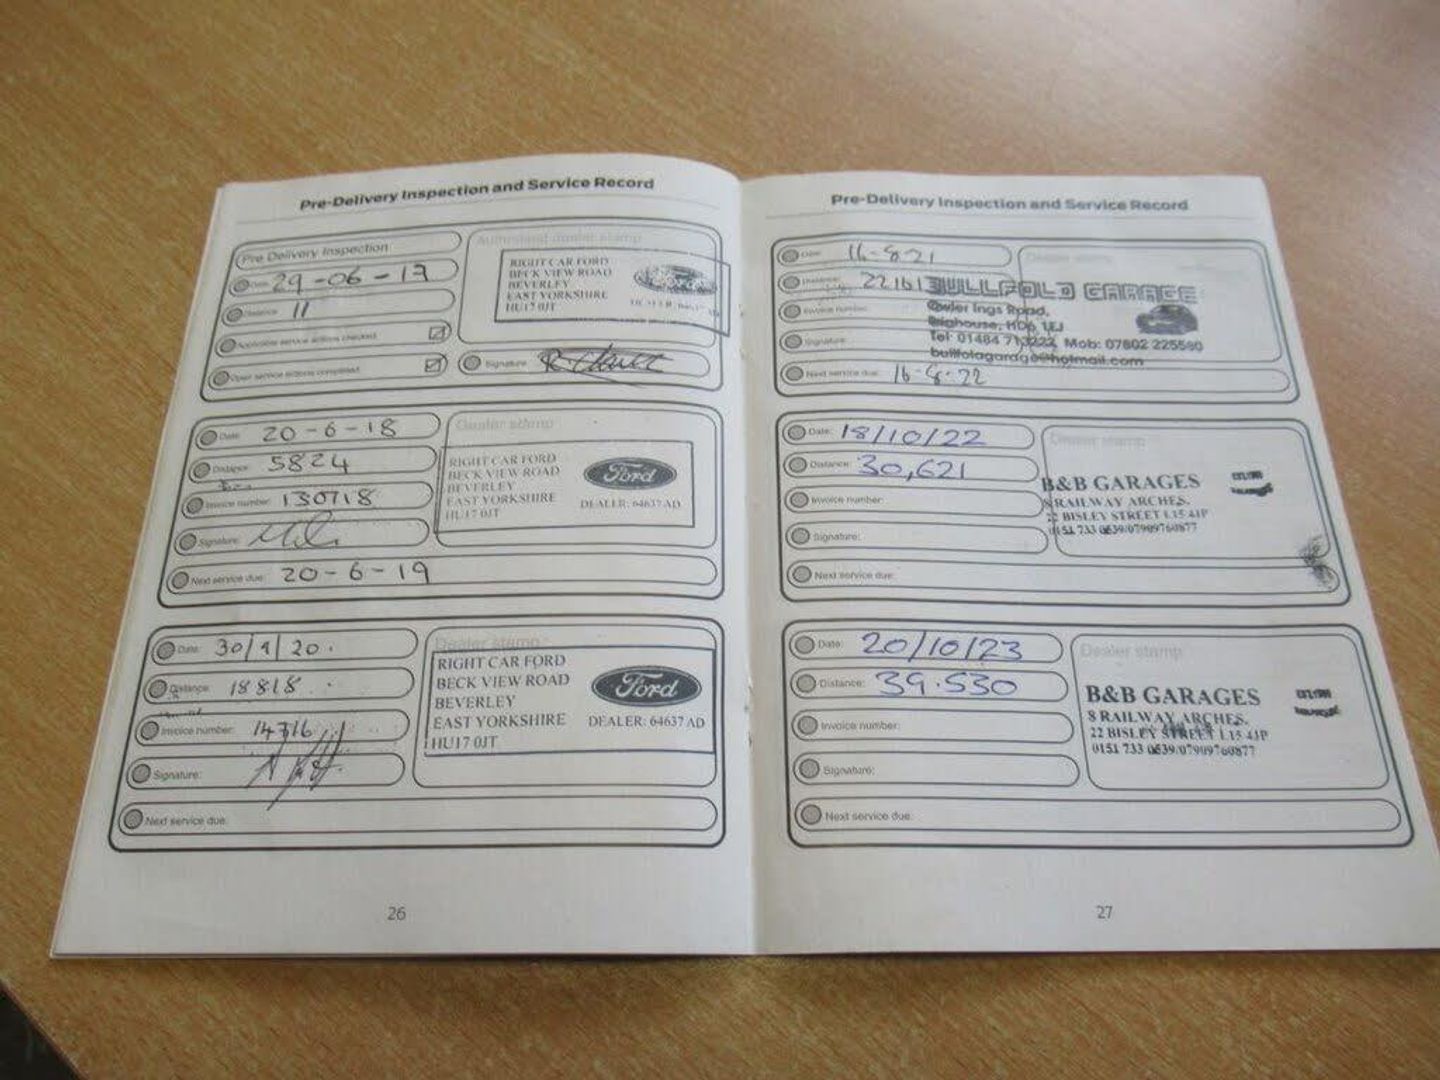 Pre-Delivery Inspection and Service Record
Pre Delivery Inspection
Authorised dealer stamp
Date: 29-06-17
Distance: 11
Applicable service actions checked
Open service actions completed
RIGHT CAR FORD
BECK VIEW ROAD
BEVERLEY
EAST YORKSHIRE
HU17 0JT
Ford
Signature:
Date: 20-6-18
Distance: 5824
Invoice number: 130718
Signature:
Next service due: 20-6-19
Dealer stamp
RIGHT CAR FORD
BECK VIEW ROAD
BEVERLEY
EAST YORKSHIRE
HU17 0JT
Ford
DEALER: 64637 AD
Date: 30/9/20.
Distance: 18818
Invoice number: 14716
Signature:
Next service due:
Dealer stamp
RIGHT CAR FORD
BECK VIEW ROAD
BEVERLEY
EAST YORKSHIRE
HU17 0JT
Ford
DEALER: 64637 AD
26
Pre-Delivery Inspection and Service Record
Date: 16-8-21
Distance: 22161
Invoice number:
Signature:
Next service due: 16-8-22
Dealer stamp
BULLFOLD GARAGE
Ings Road,
Brighouse, HD6 1EJ
Tel: 01484 713222 Mob: 07802 225580
Date: 18/10/22
Distance: 30,621
Invoice number:
Signature:
Next service due:
Dealer stamp
B&B GARAGES
8 RAILWAY ARCHES,
22 BISLEY STREET L15 4JP
0151 733 0539/07909760877
Date: 20/10/23
Distance: 39.530
Invoice number:
Signature:
Next service due:
Dealer stamp
B&B GARAGES
8 RAILWAY ARCHES,
22 BISLEY STREET L15 4JP
0151 733 0539/07909760877
27